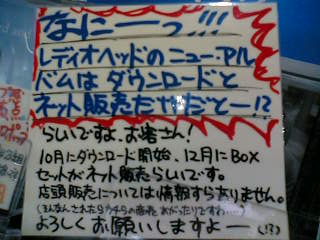 なにーっ!!!
レディオヘッドのニュー・アル
バムは ダウンロードと
ネット販売だけだとー!?
らしいですよ、お客さん!
10月にダウンロード開始、12月にBOX
セットがネット販売らしいです。
店頭販売については情報すらありません。
(そんなんされたらウチらの商売 あがったりですわ!!)
よろしく お願いしますよー